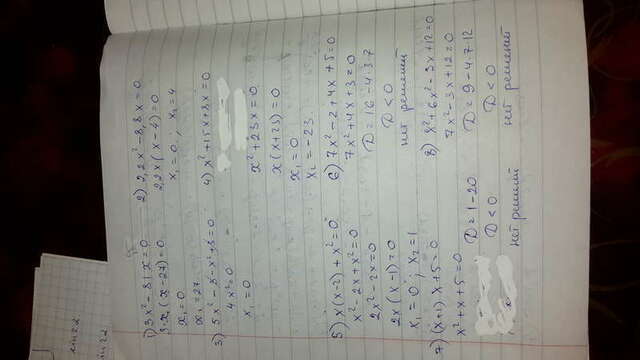 1) 3x² - 81x = 0
3x(x-27) = 0
x₁ = 0
x₂ = 27
2) 2,2x² - 8,8x = 0
2,2x(x-4) = 0
x₁ = 0; x₂ = 4
3) 5x² - 8 - x² + 8 = 0
4x² = 0
x₁ = 0
4) x² + 15x + 8x = 0
x² + 23x = 0
x(x+23) = 0
x₁ = 0
x₂ = -23
5) x(x-2) + x² = 0
x² - 2x + x² = 0
2x² - 2x = 0
2x(x-1) = 0
x₁ = 0; x₂ = 1
6) 7x² - 2 + 4x + 5 = 0
7x² + 4x + 3 = 0
D = 16 - 4·3·7
D < 0
нет решений
7) (x+1)x + 5 = 0
x² + x + 5 = 0
D = 1 - 20
D < 0
нет решений
8) x² + 6x² - 3x + 12 = 0
7x² - 3x + 12 = 0
D = 9 - 4·7·12
D < 0
нет решений